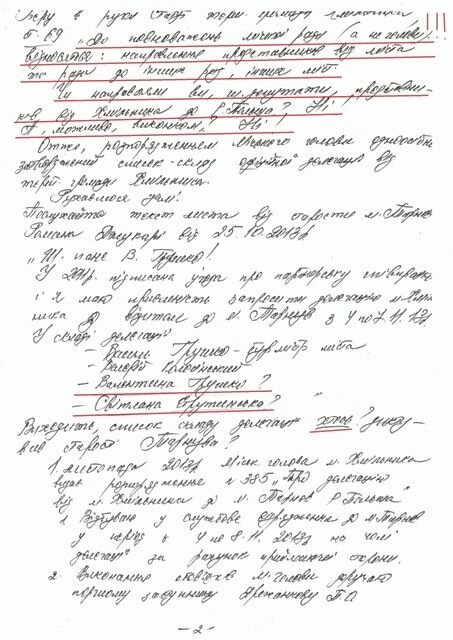 Беру в руки Статут терит. громади
ст. 69 „До повноважень міської ради (а не голови!)
відносяться: направлення представників від міста
та ради до інших рад, інших міст.
Чи направляли ви, ш. депутати, представни-
ків від Хмільника до Р. Польща? Ні,
А, можливо, виконком? Ні,
Отже, розпорядженням міського голови одноосібно
затверджений список-склад офіційної делегації від
терит. громади Хмільника.
Рухаємося далі!
Послухайте текст листа від старости м. Тарнів
Романа від 25.10.2013р.
„Ш. пане В. Прушко!
У 2011р. підписана угода про партнерську співпрацю
і я маю приємність запросити делегацію м. Хміль-
ника з візитом до м. Тарнув з 4 по 7.11.13р.
У складі делегації
– Василь Прушко – бурмістр міста
– Валерій
– Валентина Прушко?
– Світлана
Виходить, список складу делегації хтось? дикту-
вав старості Тарнува?
1 листопада 2013р. Міськ. голова м. Хмільника
видає розпорядження № 385 „Про делегацію
від м. Хмільника до м. Тарнов Р. Польща"
1. Відбуваю у службове відрядження до м. Тарнов
у період з 4 по 8.11.2013р. на чолі
делегації за рахунок приймаючої сторони.
2. Виконання обов'язків м. голови доручаю
першому заступнику
– 2 –